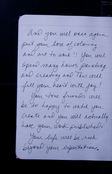 And you will once again
put your love of coloring
and art to use! You will
spend many hours painting
and creating and this will
fill your heart with joy!
Your true friends will
be so happy to watch you
create and you will actually
have your work published!
Your life will be rich
beyond your expectations,